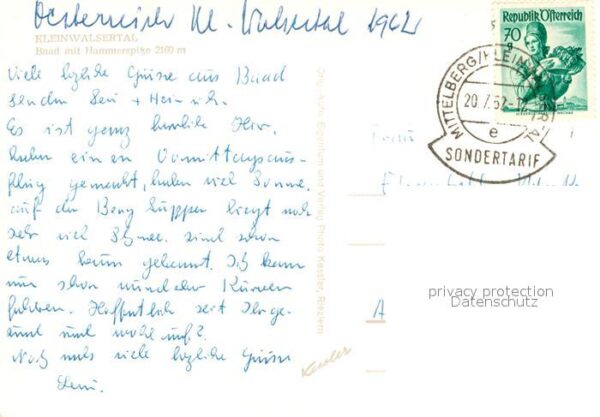 Oesterreich Kl. Walsertal 1962
KLEINWALSERTAL
Baad mit Hammerspitze 2160 m
Viele herzliche Grüsse aus Baad
senden Leni + Heinrich.
Es ist ganz herrliche Hier,
haben einen Vormittagsaus-
flug gemacht, haben viel Sonne.
auf den Berg liegt noch
sehr viel Schnee. sind schon
etwas braun gebrannt. Ich kann
nur schon wunder Kurven
fahren. Hoffentlich seit Ihr ge-
sund und wohl auf?
Noch mals viele herzliche Grüsse
Leni.
Original Eigentum und Verlag Photo Kessler, Riezlern
Kessler
Republik Österreich
70 g
MITTELBERG/KLEINWALSERTAL
20.7.62-12
e
SONDERTARIF
A
privacy protection
Datenschutz